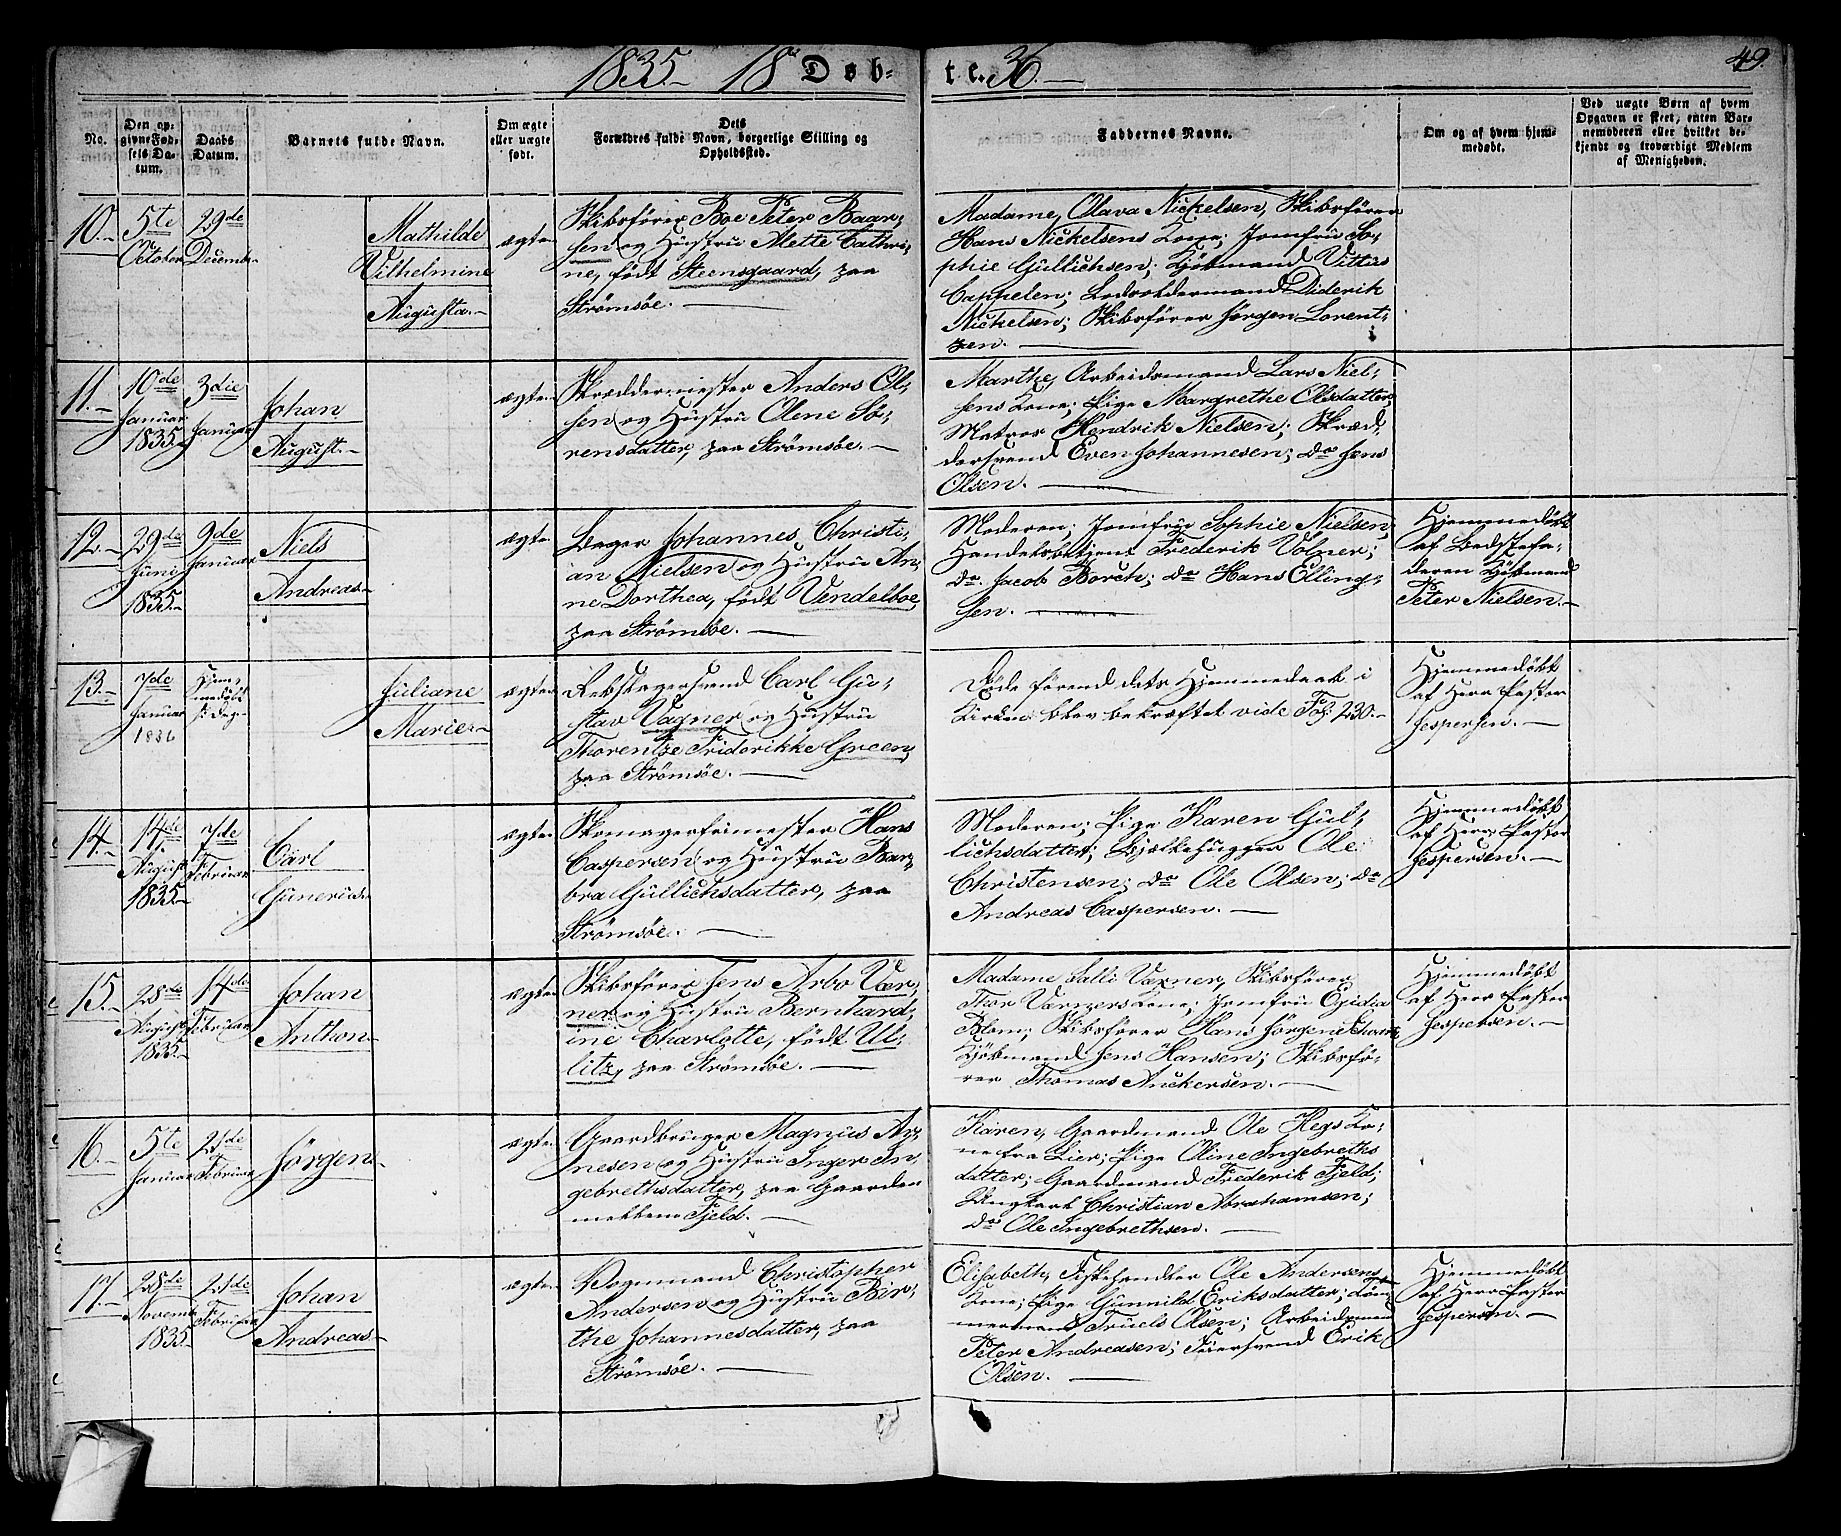 1835 18 Døb-te. 36.
49.
No.
Den op-
givne Fød-
sels Da-
tum.
Daabs
Datum.
Barnets fulde Navn.
Om ægte
eller uægte
født.
Dets
Forældres fulde Navn, borgerlige Stilling og
Opholdssted.
Faddernes Navne.
Om og af hvem hjem-
medøbt.
Ved uægte Børn af hvem
Opgaven er skeet, enten Bar-
nemoderen eller hvilket be-
kjendt og troværdigt Medlem
af Menigheden.
10.
5te
October
29de
Decemb.
Mathilde
Vilhelmine
Augusta.
ægte
Skibsfører Boe Peter Baar-
sen og Hustru Alette Cathri-
ne, født Steensgaard, paa
Strømsøe.
Madame, Olava Nickelsen, Skibsfører
Hans Nickelsens Kone; Jomfru So-
phie Gullichsen; Kjøbmand Vittus
Cappelen; Lodsoldermand Diderik
Nickelsen; Skibsfører Jørgen Lorent-
zen.
11.
10de
Januar
1835
3die
Januar
Johan
August.
ægte
Skræddermester Anders Ol-
sen og Hustru Olene Sø-
rensdatter, paa Strømsøe.
Marthe, Arbeidsmand Lars Niel-
sens Kone; Pige Margrethe Olsdatter;
Matros Hendrik Nielsen; Skræd-
dersvend Even Johannesen; do Jens
Olsen.
12.
29de
Juni
1835
9de
Januar
Niels
Andreas
ægte
Lager Johannes Christi-
an Nielsen og Hustru An-
ne Dorthea, født Vendelboe,
paa Strømsøe.
Moderen; Jomfru Sophie Nielsen;
Handelsbetjent Frederik Volner;
do. Jacob Borch; do Hans Elling-
sen.
Hjemmedøbt
af Bedstefa-
deren Kjøbmand
Peter Nielsen.
13.
7de
Januar
1836
Hjem-
medøbt
s: Dag
Juliane
Marie
ægte
Rebslagersvend Carl Gu-
stav Vagner og Hustru
Thorentze Friderikke Green,
paa Strømsøe.
Døde førend dets Hjemmedaab i
Kirken blev bekræftet vide Fol: 230.
Hjemmedøbt
af Herr Pastor
Jespersen.
14.
14de
August
1835
7de
Februar
Carl
Gunerius
ægte
Skomagerfrimester Hans
Caspersen og Hustru Bar-
bra Gullichsdatter, paa
Strømsøe.
Moderen; Pige Karen Gul-
lichsdatter; Bjelkehugger Ole
Christensen; do Ole Olsen; do
Andreas Caspersen.
Hjemmedøbt
af Herr Pastor
Jespersen.
15.
28de
August
1835
14de
Februar
Johan
Anthon
ægte
Skibsfører Jens Arbo Vær-
ner og Hustru Bernhard-
ine Charlotte, født Ul-
litz, paa Strømsøe.
Madame Salli Værner, Skibsfører
Thor Værners Kone; Jomfru Egidia
Blom; Skibsfører Hans Jørgen
Kjøbmand Jens Hansen; Skibsfø-
rer Thomas Anckersen.
Hjemmedøbt
af Herr Pastor
Jespersen.
16.
5te
Januar
21de
Februar
Jørgen
ægte
Gaardbruger Magnus Ar-
nesen og Hustru Inger In-
gebrethsdatter, paa Gaarden
mellem Fjeld.
Karen, Gaardmand Ole Hegs Ko-
ne fra Lier; Pige Oline Ingebreths
datter; Gaardmand Frederik Fjeld;
Ungkarl Christian Abrahamsen;
do Ole Ingebrethsen.
17.
28de
Novemb.
1835
21de
Februar
Johan
Andreas
ægte
Vognmand Christopher
Andersen og Hustru Bir-
the Johannesdatter, paa
Strømsøe.
Elisabeth, Fiskehandler Ole Andersens
Kone; Pige Gunnild Eriksdatter; Tøm-
mermand Truels Olsen; Arbeidsmand
Peter Andreasen; Feiersvend Erik
Olsen.
Hjemmedøbt
af Herr Pastor
Jespersen.